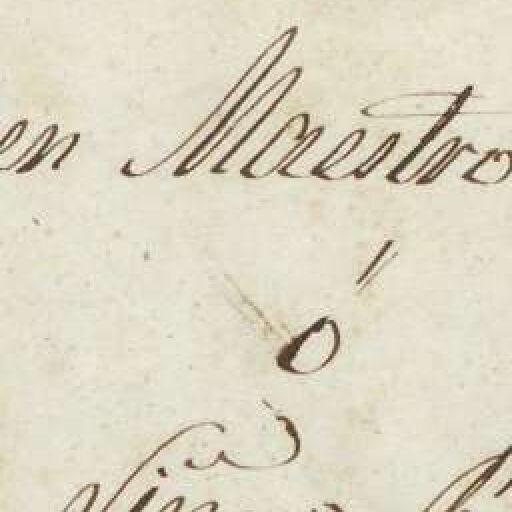 en Maestro
ó